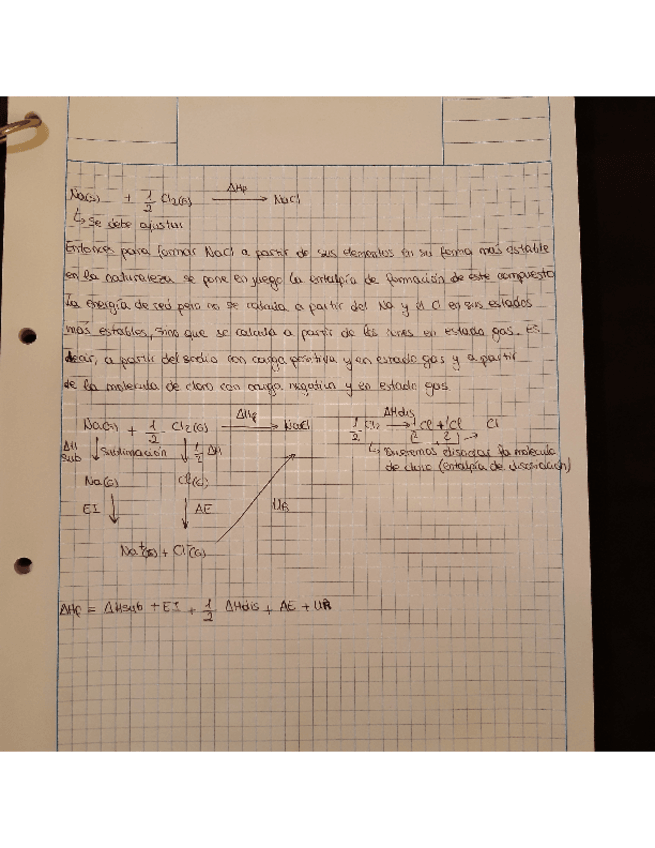 Na(s) + 1/2 Cl2(G) ΔHf → NaCl
↳ Se debe ajustar
Entonces para formar NaCl a partir de sus elementos en su forma más estable
en la naturaleza se pone en juego la entalpía de formación de este compuesto
La energía de red pero no se calcula a partir del Na y el Cl en sus estados
más estables, sino que se calcula a partir de los iones en estado gas. Es
decir, a partir del sodio con carga positiva y en estado gas y a partir
de la molecula de cloro con carga negativa y en estado gas.
Na(s) + 1/2 Cl2(G) ΔHf → NaCl
1/2 Cl2 ΔHdis → 1/2 Cl + 1/2 Cl → Cl
ΔH sub ↓ sublimación ↓ 1/2 ΔH
↳ Queremos disociar la molecula
de cloro (entalpía de disociación)
Na(G) Cl(G)
EI ↓ ↓ AE UR
Na+(G) + Cl-(G)
ΔHf = ΔHsub + EI + 1/2 ΔHdis + AE + UR